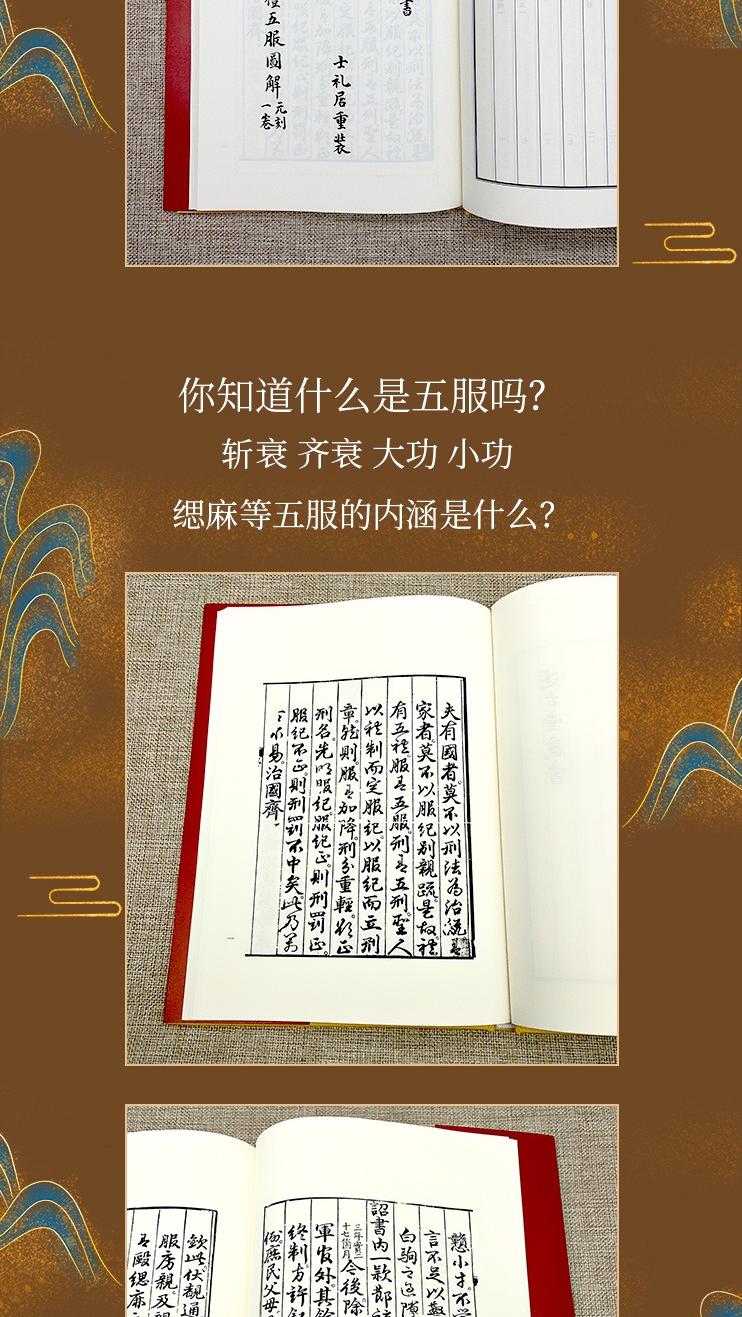 書
士礼居重装
五服圖解
元刻
一卷
你知道什么是五服吗?
斩衰 齐衰 大功 小功
缌麻等五服的内涵是什么?
夫有國者莫不以刑法為治
家者莫不以服纪别親疏是故禮
有五禮服有五服刑有五刑聖人
以禮制而定服纪以服纪而立刑
章然則服有加降刑分重輕欲正
刑名先明服纪服纪正則刑罰正
服纪不正則刑罰不中矣此乃萬
不易治國齊
言不足以
白駒之
詔書内一款
三年實二
十七個月
今後除
軍官外其餘
終制方許
庶民父母
欽此伏覩通
服房親及
毆緦麻